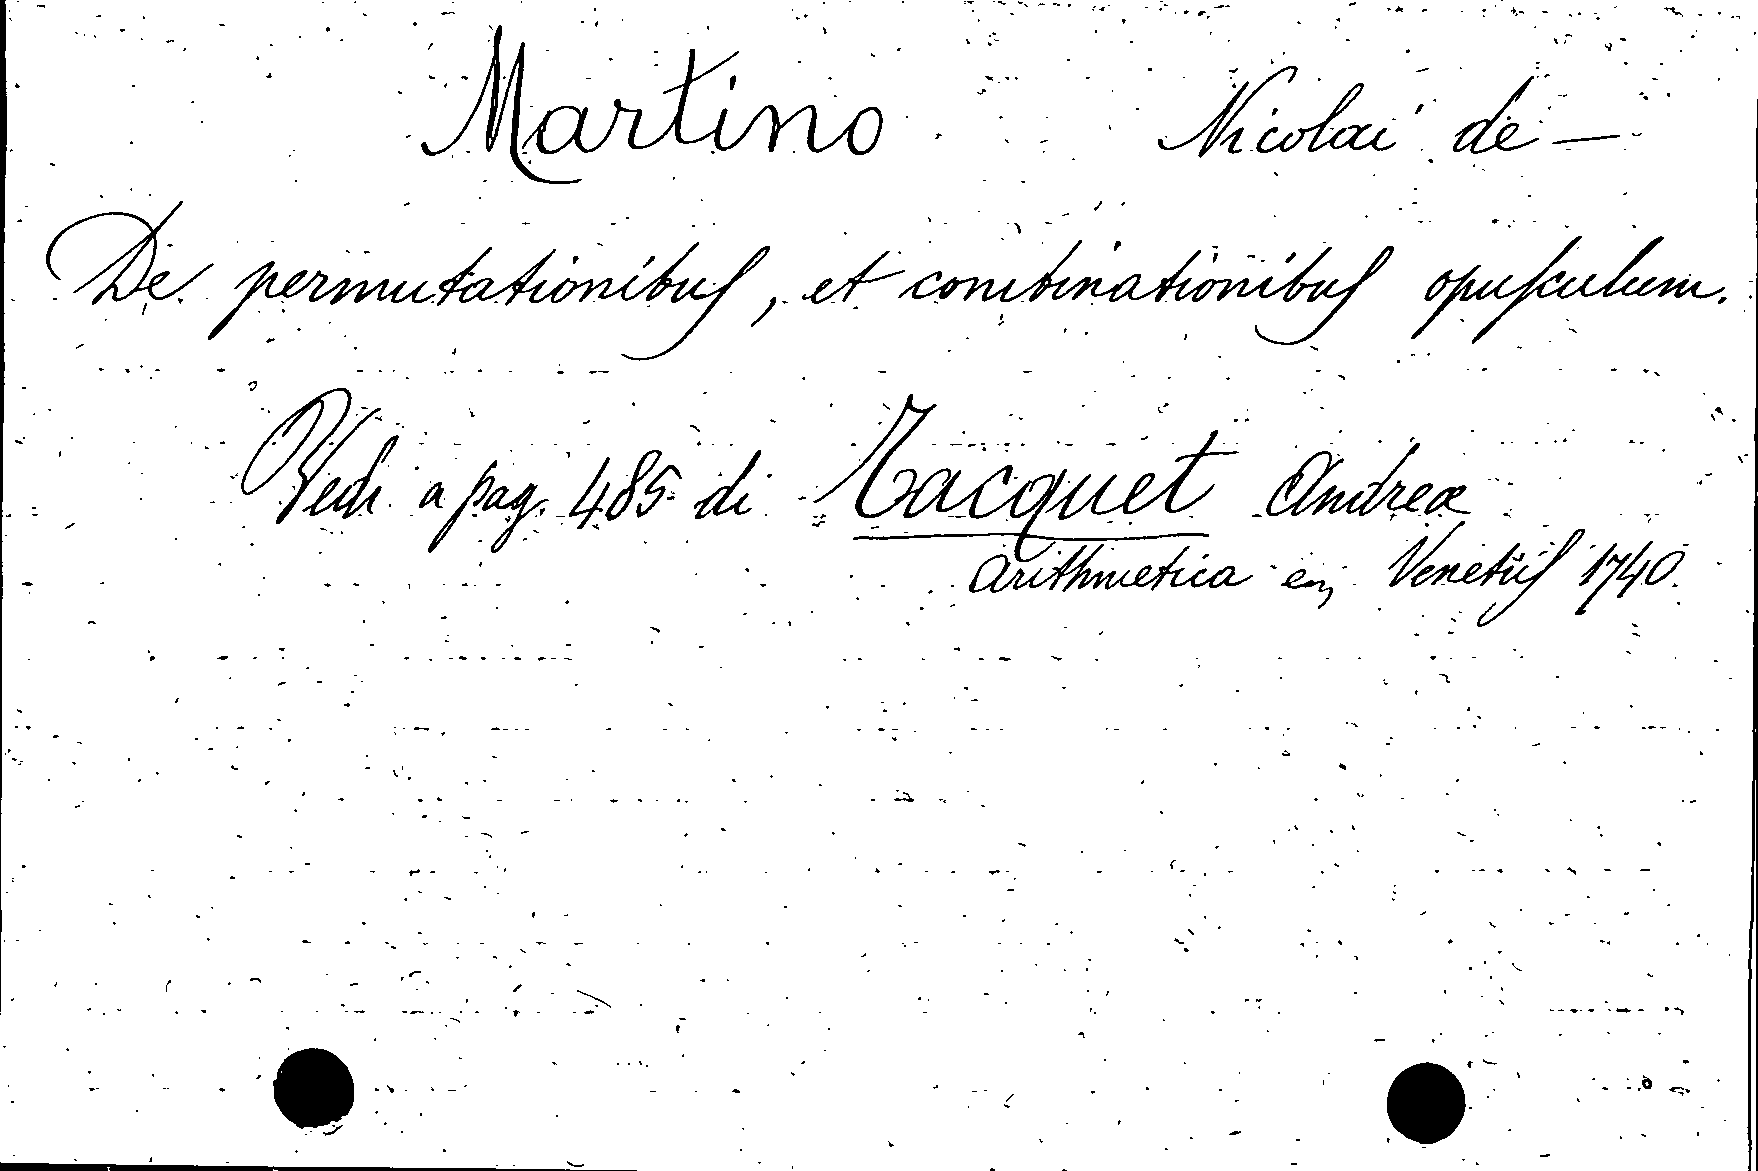 Martino Nicolai de —
De permutationibus, et combinationibus opusculum.
Vedi a pag. 485 di Tacquet Andreæ
Arithmetica Venetiis 1740.